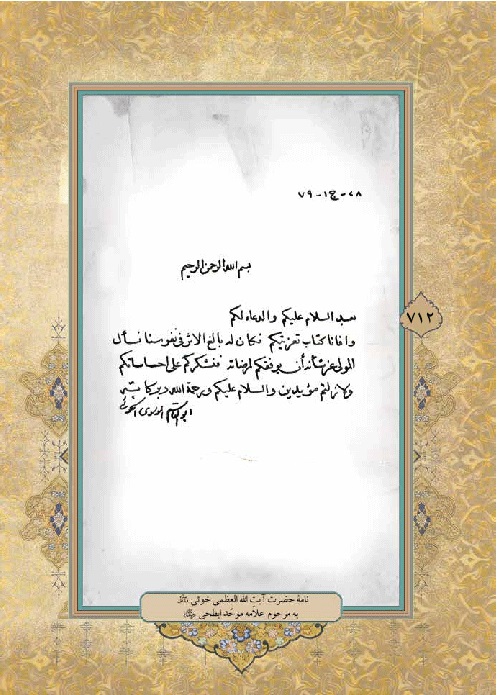 ٧٨-ج١-٧٩
بسم الله الرحمن الرحيم
بعد السلام عليكم والدعاء لكم
وافانا كتاب تعزيتكم فكان له بالغ الاثر فى نفوسنا نسأل
المولى عز شأنه أن يوفقكم لمرضاته فنشكركم على احساساتكم
ولا زلتم مؤيدين والسلام عليكم ورحمة الله وبركاته
ابوالقاسم الموسوى الخوئى
٧١٢
نامۀ حضرت آیت الله العظمی خوئی
به مرحوم علامه موحد ابطحی